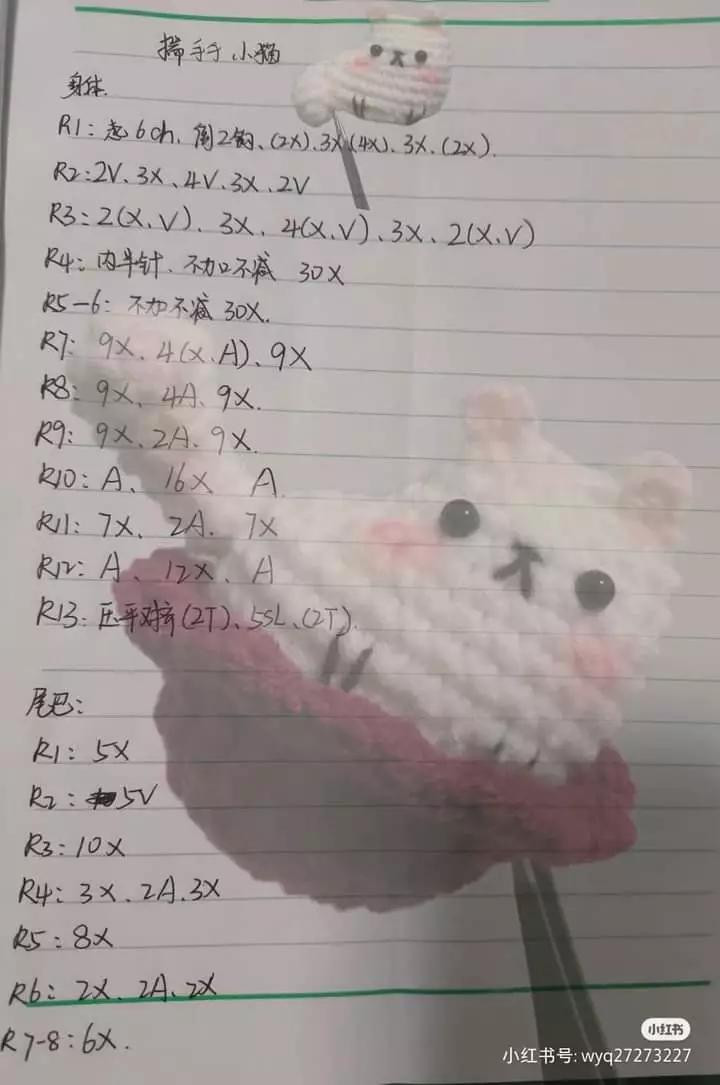 揣手手小猫
身体.
R1: 起6ch, 倒2钩、(2X).3X(4X).3X.(2X).
R2:2V、3X、4V.3X、2V
R3: 2(X.V)、3X、4(X.V)、3X、2(X.V)
R4: 内半针、不加不减 30X
R5-6: 不加不减 30X.
R7: 9X、4(X.A)、9X
R8: 9X、4A、9X.
R9: 9X、2A、9X.
R10: A、16X A.
R11: 7X、2A、7X
R12: A、12X、A
R13: 压平对挤(2T)、5SL、(2T).
尾巴:
R1: 5X
R2: 5V
R3: 10X
R4: 3X、2A.3X
R5: 8X
R6: 2X、2A、2X
R7-8: 6X.
小红书
小红书号: wyq27273227